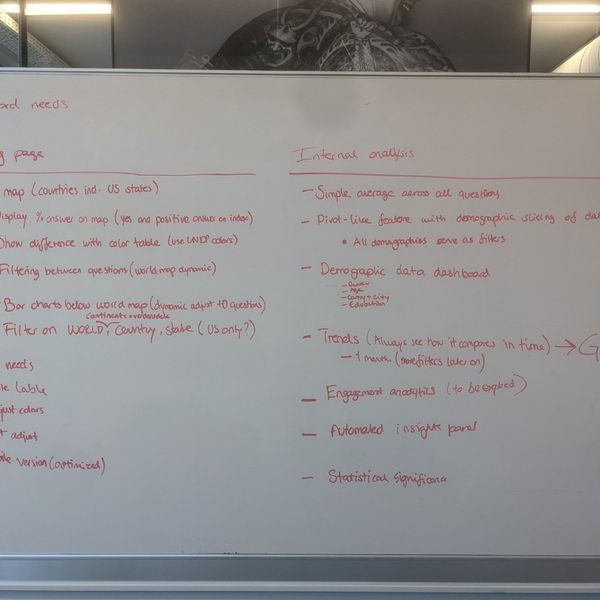 ord needs
g page
map (countries incl. US states)
isplay % answer on map (yes and positive answer on index)
Show difference with color table (use UNDP colors)
Filtering between questions (world map dynamic)
Bar charts below world map (dynamic adjust to questions)
continents
Filter on WORLD, country, state (US only?)
needs
le table
just colors
adjust
version (optimized)
Internal analysis
— Simple average across all questions
— Pivot-like feature with demographic slicing of da
• All demographics serve as filters
— Demographic data dashboard
— Gender
— Age
— County + City
— Education
— Trends (Always see how it compares in time) → G
— 1 month (more filters later on)
— Engagement analytics (to be explored)
— Automated insights panel
— Statistical significance